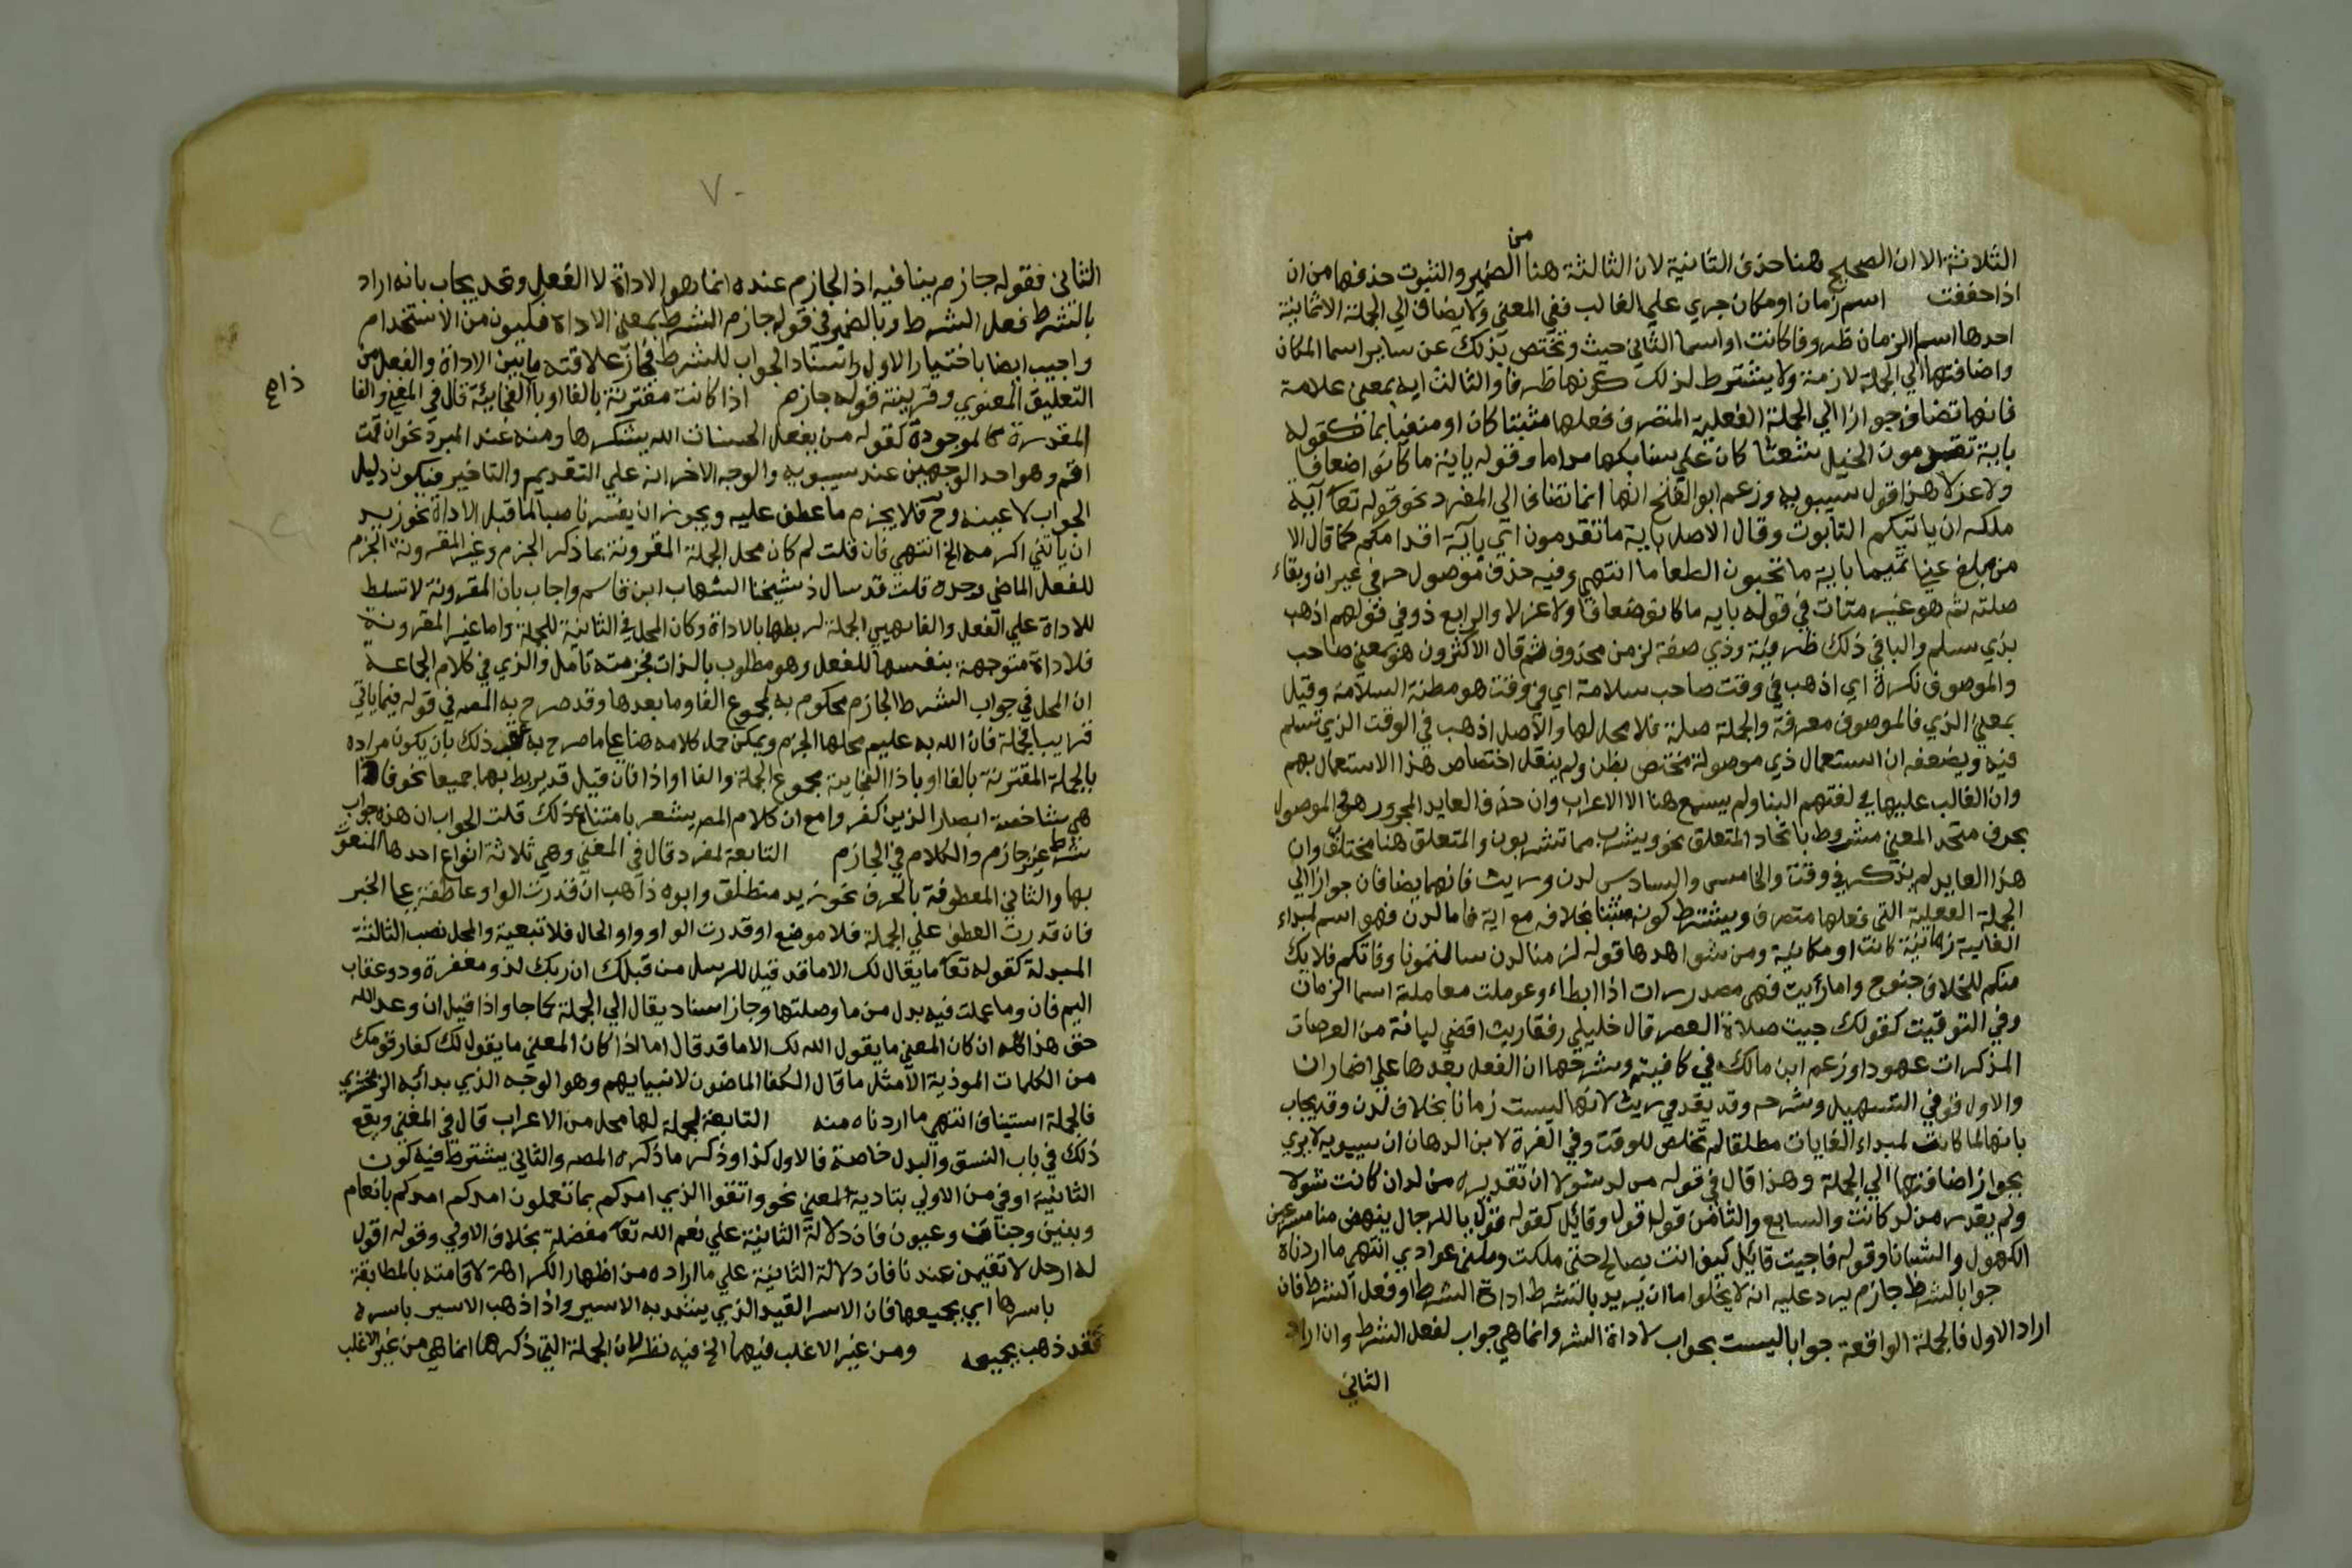 الثلاثة الا ان الصحيح هنا حذف الثانية لان الثالثة هنا من الضمير والثبوت حذفها من ان
اذا خففت اسم زمان او مكان جري علي الغالب ففي المعني ولا يضاف الي الجملة الا ثمانية
احدها اسما الزمان ظروفا كانت او اسما الثاني حيث وتختص بذلك عن ساير اسما المكان
واضافتها الي الجملة لازمة ولا يشترط لذلك كونها ظرفا والثالث اية بمعني علامة
فانها تضاف جوازا الي الجملة الفعلية المتصرف فعلها مثبتا كان او منفيا بما كقوله
باية تقدمون الخيل شعثا كان علي سنابكها مداما وقوله باية ما كانوا ضعافا
ولا عزلا هذا قول سيبويه وزعم ابو الفتح انها انما تضاف الي المفرد نحو قوله تعا آية
ملكه ان ياتيكم التابوت وقال الاصل باية ما تقدمون اي باية اقدامكم كما قال الا
من مبلغ عني تميما باية ما تحبون الطعاما انتهي وفيه حذف موصول حرفي غير ان وبقاء
صلته ثم هو غير متات في قوله بايه ما كانوا ضعافا ولا عزلا والرابع ذو في قولهم اذهب
بذي تسلم والبا في ذلك ظرفية وذي صفة لزمن محذوف ثم قال الاكثرون هو بمعني صاحب
والموصوف نكرة اي اذهب في وقت صاحب سلامة اي في وقت هو مظنة السلامة وقيل
بمعني الذي فالموصوف معرفة والجملة صلة فلا محل لها والاصل اذهب في الوقت الذي تسلم
فيه ويضعفه ان استعمال ذي موصولة مختص بطي ولم ينقل اختصاص هذا الاستعمال بهم
وان الغالب عليها في لغتهم البنا ولم يسمع هنا الا الاعراب وان حذف العايد المجرور هو في الموصول
بحرف متحد المعني مشروط باتحاد المتعلق نحو ويشرب مما تشربون والمتعلق هنا مختلف وان
هذا العايد لم يذكر في وقت والخامس والسادس لدن وريث فانهما يضافان جوازا الي
الجملة الفعلية التي فعلها متصرف ويشترط كونه مثبتا بخلافه مع اية فاما لدن فهو اسم لمبداء
الغاية زمانية كانت او مكانية ومن شواهدها قوله لزمنا لدن سالمتمونا وفاقكم فلا يك
منكم للخلاف جنوح واما ريث فهي مصدر راث اذا ابطاء وعوملت معاملة اسما الزمان
وفي التوقيت كقولك جيت صلاة العصر قال خليلي رفقا ريث اقضي لبانة من العرصات
المذكرات عهودا وزعم ابن مالك في كافيته وشرحها ان الفعل بعدها علي اضمار ان
والاول قوفي التسهيل وشرحه وقد يقدر في ريث لانها ليست زمانا بخلاف لدن وقد يجاب
بانها لما كانت لمبداء الغايات مطلقا لم تخلص للوقت وفي الغرة لابن الدهان ان سيبويه لا يري
بجواز اضافتها الي الجملة وهذا قال في قوله من لد شولا ان تقديره من لد ان كانت شولا
ولم يقدر من لد كانت والسابع والثامن قول وقائل كقوله قول يا للرجال ينهض منا مسرعين
الكهول والشبانا وقوله فاجبت قائل كيف انت بصالح حتي مللت وملني عوادي انتهي ما اردناه
جوابا لشرط جازم يرد عليه انه لا يخلو اما ان يريد بالشرط اداة الشرط او فعل الشرط فان
اراد الاول فالجملة الواقعة جوابا ليست بجواب لاداة الشر وانما هي جواب لفعل الشرط وان اراد
الثاني
٧٠
الثاني فقوله جازم ينافيه اذ الجازم عنده انما هو الاداة لا الفعل وقد يجاب بانه اراد
بالشرط فعل الشرط وبالضمير في قوله جازم الشرط بمعني الاداة فيكون من الاستخدام
واجيب ايضا باختيار الاول واسناد الجواب للشرط مجاز علاقته ما بين الاداة والفعل من
التعليق المعنوي وقرينته قوله جازم اذا كانت مقترنة بالفا او باذا الفجائية قال في المغني والفا
المقدرة كالموجودة كقوله من يفعل الحسنات الله يشكرها ومنه عند المبرد نحو ان قمت
اقم وهو احد الوجهين عند سيبويه والوجه الاخر انه علي التقديم والتاخير فيكون دليل
الجواب لا عينه وح فلا يجزم ما عطف عليه ويجوز ان يفسر ناصبا لما قبل الاداة نحو زيد
ان ياتني اكرمه الخ انتهي فان قلت لم كان محل الجملة المقرونة بما ذكر الجزم وغير المقرونة الجزم
للفعل الماضي وحده قلت قد سال ذ شيخنا الشهاب ابن قاسم واجاب بان المقرونة لا تسلط
للاداة علي الفعل والفا هيي الجملة لربطها بالاداة وكان المحل في الثانية للجملة واما غير المقرونة
فلاداة متوجهة بنفسها للفعل وهو مطلوب بالذات فجزمته تامل والذي في كلام الجماعة
ان المحل في جواب الشرط الجازم محكوم به لمجموع الفا وما بعدها وقد صرح به المص في قوله فيما ياتي
قريبا فجملة فان الله به عليم محلها الجزم ويمكن حمل كلامه هنا علي ما صرح به بعد ذلك بان يكون مراده
بالجملة المقترنة بالفا او باذا الفجاية مجموع الجملة والفا او اذا فان قيل قد يربط بهما جميعا نحو فاذا
هي شاخصة ابصار الذين كفروا مع ان كلام المص يشعر بامتناع ذلك قلت الجواب ان هذه جواب
شرط غير جازم والكلام في الجازم التابعة لمفرد قال في المغني وهي ثلاثة انواع احدها المنعوت
بها والثاني المعطوفة بالحرف نحو زيد منطلق وابوه ذاهب ان قدرت الواو عاطفة علي الخبر
فان قدرت العطف علي الجملة فلا موضع او قدرت الواو واو الحال فلا تبعية والمحل نصب الثالثة
المبدلة كقوله تعا ما يقال لك الا ما قد قيل للرسل من قبلك ان ربك لذو مغفرة وذو عقاب
اليم فان وما عملت فيه بدل من ما وصلتها وجاز اسناد يقال الي الجملة كما جا واذا قيل ان وعد الله
حق هذا كله ان كان المعني ما يقول الله لك الا ما قد قال اما اذا كان المعني ما يقول لك كفار قومك
من الكلمات الموذية الا مثل ما قال الكفا الماضون لانبيايهم وهو الوجه الذي بدا به الزمخشري
فالجملة استيناف انتهي ما اردناه منه التابعة لجملة لها محل من الاعراب قال في المغني ويقع
ذلك في باب النسق والبدل خاصة فالاول كذا وذكر ما ذكره المص والثاني يشترط فيه كون
الثانية اوفي من الاولي بتادية المعني نحو واتقوا الذي امدكم بما تعلمون امدكم بانعام
وبنين وجنات وعيون فان دلالة الثانية علي نعم الله تعا مفصلة بخلاف الاولي وقوله اقول
له ارحل لا تقيمن عندنا فان دلالة الثانية علي ما اراده من اظهار الكراهة لاقامته بالمطابقة
باسرها اي بجميعها فان الاسر القيد الذي يشد به الاسير واذا ذهب الاسير باسره
فقد ذهب بجميعه ومن غير الاغلب فيهما الخ فيه نظر لان الجملة التي ذكرها انما هي من غير الاغلب